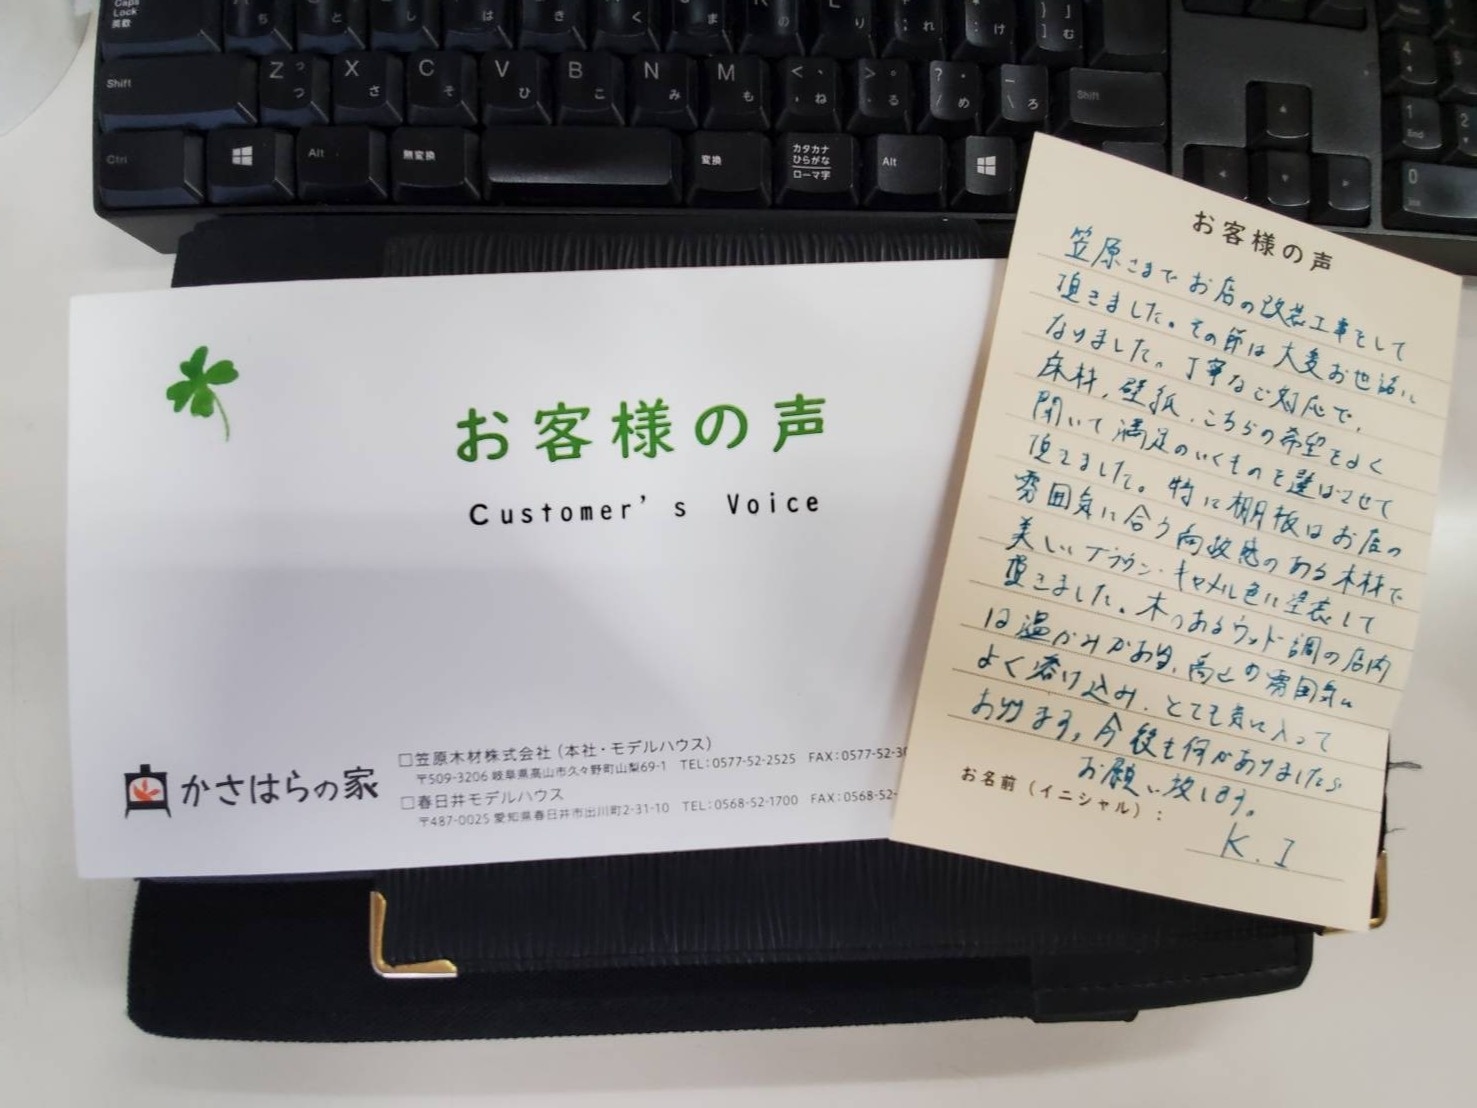 Caps
Lock
英数
ち
と
し
は
き
く
ま
の
り
れ
け
む
Shift
Z っ つ
X さ
C そ
V ひ
B こ
N み
M も
< 、 , ね
> 。 . る
? ・ / め
_ \ ろ
Shift
Ctrl
Alt
無変換
変換
カタカナ
ひらがな
ローマ字
Alt
4
1
End
2
0
Ins
お客様の声
Customer's Voice
かさはらの家
□笠原木材株式会社（本社・モデルハウス）
〒509-3206 岐阜県高山市久々野町山梨69-1 TEL:0577-52-2525 FAX:0577-52-3
□春日井モデルハウス
〒487-0025 愛知県春日井市出川町2-31-10 TEL:0568-52-1700 FAX:0568-52-
お客様の声
笠原さまでお店の改装工事をして
頂きました。その節は大変お世話に
なりました。丁寧なご対応で、
床材、壁紙、こちらの希望をよく
聞いて満足のいくものを選ばさせて
頂きました。特に棚板はお店の
雰囲気に合う高級感のある木材で
美しいブラウン・キャメル色に塗装して
頂きました。木のあるウッド調の店内
は温かみがあり、高山の雰囲気に
よく溶け込み、とても気に入って
おります。今後も何かありましたら
お願い致します。
お名前（イニシャル）：
K.I